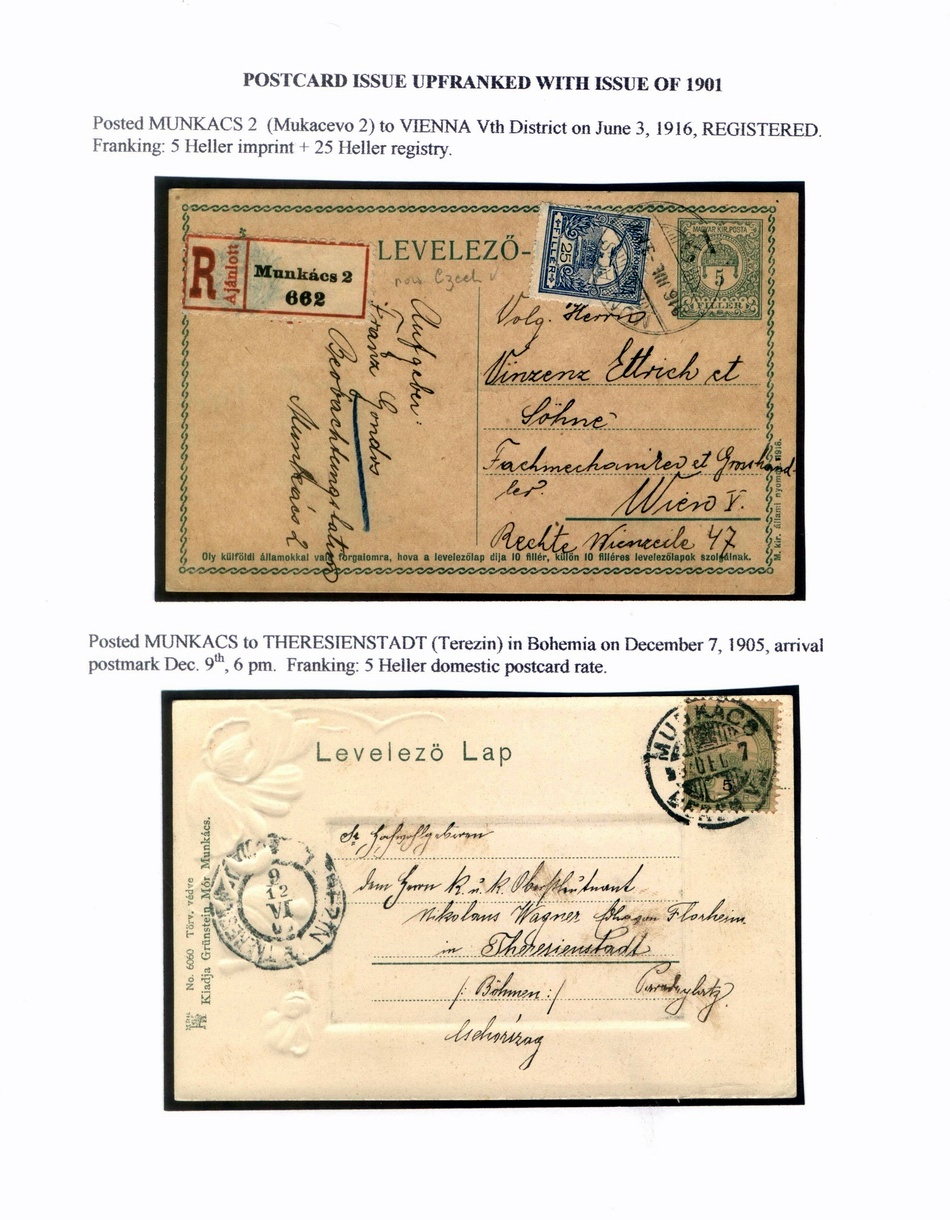 POSTCARD ISSUE UPFRANKED WITH ISSUE OF 1901
Posted MUNKACS 2 (Mukacevo 2) to VIENNA Vth District on June 3, 1916, REGISTERED.
Franking: 5 Heller imprint + 25 Heller registry.
R
Ajánlott
Munkács 2
662
LEVELEZŐ-
now Czech
25
FILLÉR
MAGYAR KIR. POSTA
5
FILLÉR
Aufgeber:
Franz Gondos
Beobachtungsstation
Munkács 2
Herrn
Vinzenz Ettrich et
Söhne
Fachmechaniker et Grosshänd-
ler
Wien V.
Rechte Wienzeile 47
Oly külföldi államokkal való forgalomra, hova a levelezőlap díja 10 fillér, külön 10 filléres levelezőlapok szolgálnak.
M. kir. állami nyomda 1916.
Posted MUNKACS to THERESIENSTADT (Terezin) in Bohemia on December 7, 1905, arrival
postmark Dec. 9th, 6 pm. Franking: 5 Heller domestic postcard rate.
Levelező Lap
MUNKÁCS
DEC 7
5
Sr Hochwohlgeboren
dem Herrn k. u. k. Oberstleutnant
Nikolaus Wagner Florheim
in Theresienstadt
/: Böhmen :/
Paradeplatz
Csehország
9
12
VI
No. 6060 Törv. védve
Kiadja Grünstein Mór Munkács.